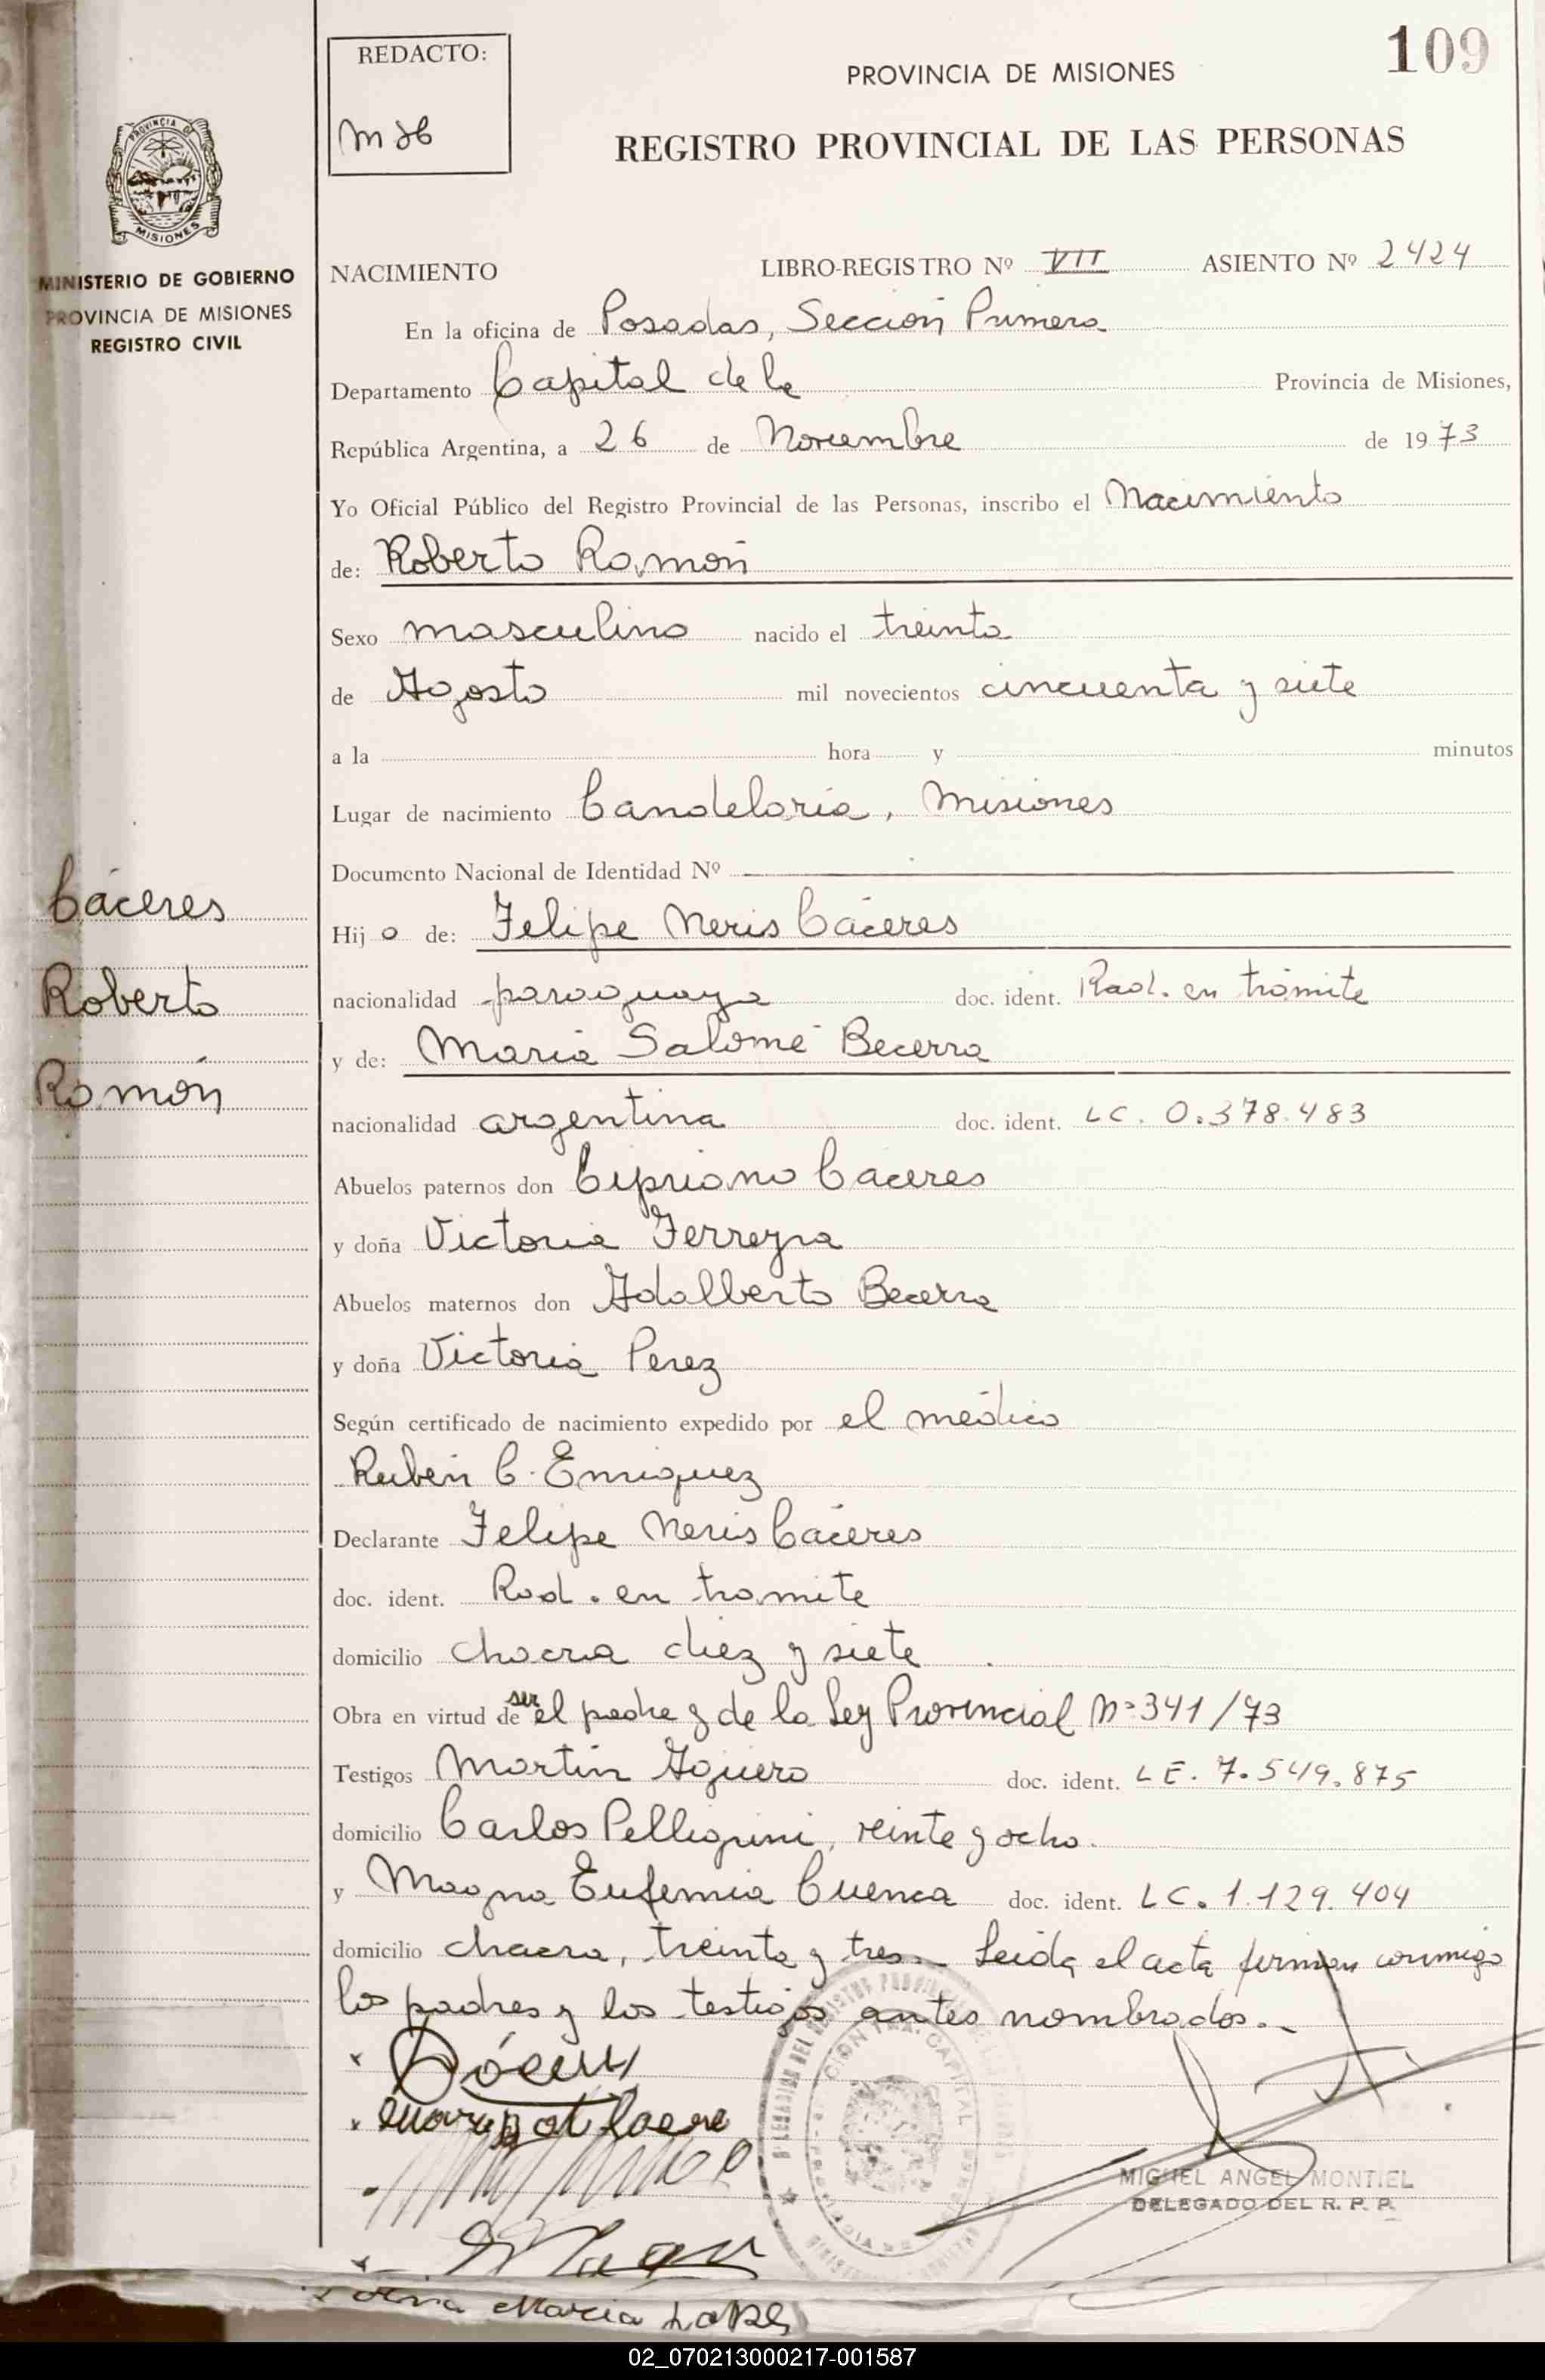 109
REDACTO:
PROVINCIA DE MISIONES
REGISTRO PROVINCIAL DE LAS PERSONAS
PROVINCIA DE
MISIONES
MINISTERIO DE GOBIERNO
PROVINCIA DE MISIONES
REGISTRO CIVIL
NACIMIENTO LIBRO-REGISTRO Nº VII ASIENTO Nº 2424
En la oficina de Posadas, Sección Primera
Departamento Capital de la Provincia de Misiones,
República Argentina, a 26 de Noviembre de 1973
Yo Oficial Público del Registro Provincial de las Personas, inscribo el Nacimiento
de: Roberto Ramón
Sexo masculino nacido el treinta
de Agosto mil novecientos cincuenta y siete
a la hora y minutos
Lugar de nacimiento Candelaria, Misiones
Documento Nacional de Identidad Nº
Cáceres
Roberto
Ramón
Hijo de: Felipe Neris Cáceres
nacionalidad paraguaya doc. ident. Rad. en trámite
y de: María Salomé Becerra
nacionalidad argentina doc. ident. LC. 0.378.483
Abuelos paternos don Cipriano Cáceres
y doña Victoria Ferreyra
Abuelos maternos don Adalberto Becerra
y doña Victoria Perez
Según certificado de nacimiento expedido por el médico
Rubén C. Enriquez
Declarante Felipe Neris Cáceres
doc. ident. Rad. en tramite
domicilio chacra diez y siete
Obra en virtud de ser el padre y de la Ley Provincial Nº 341/73
Testigos Martín Agüero doc. ident. LE. 7.549.875
domicilio Carlos Pellegrini, veinte y ocho.
y Magna Eufemia Cuenca doc. ident. LC. 1.129.404
domicilio chacra, treinta y tres. Leida el acta firman conmigo
los padres y los testigos antes nombrados.
MIGUEL ANGEL MONTIEL
DELEGADO DEL R. P. P.
02_070213000217-001587